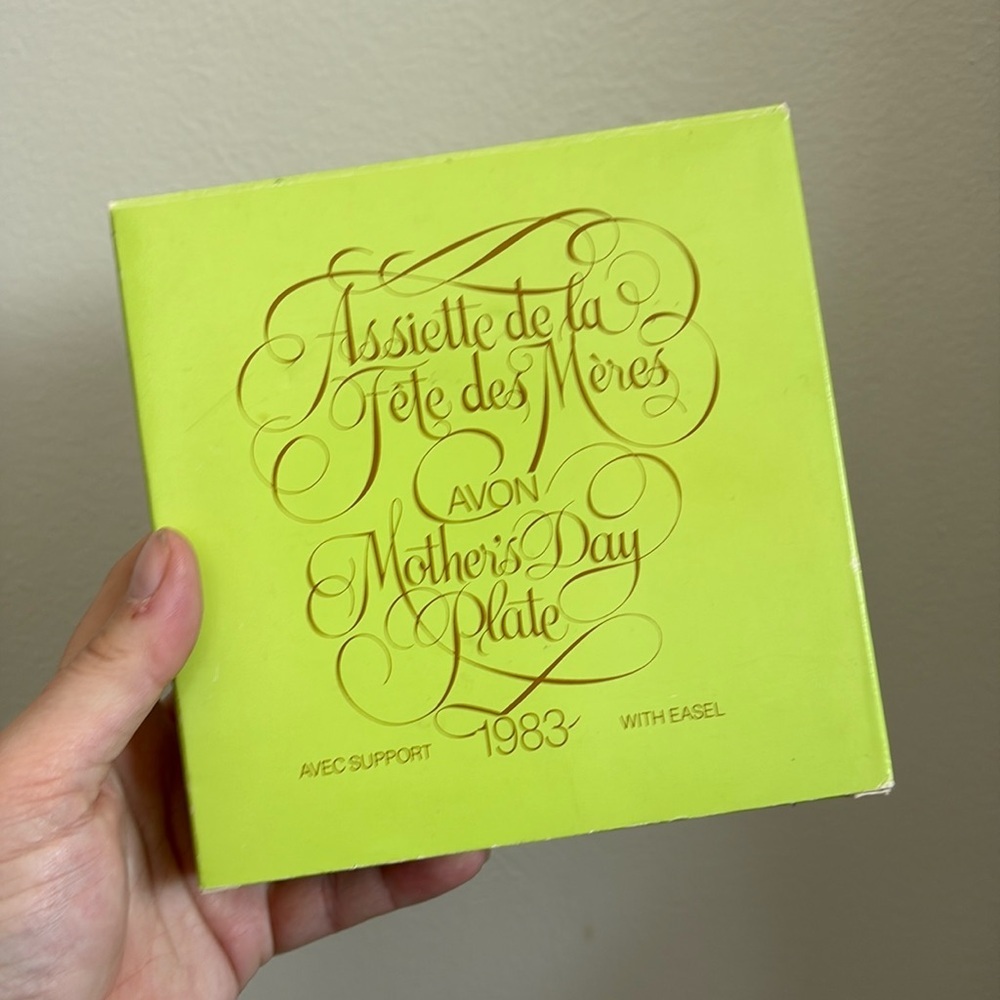 Assiette de la
Fête des Mères
AVON
Mother's Day
Plate
1983
AVEC SUPPORT
WITH EASEL